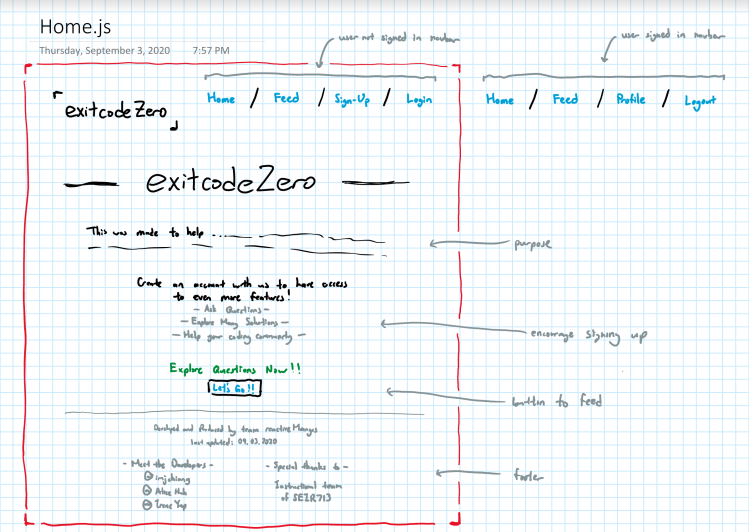 Home.js
Thursday, September 3, 2020 7:57 PM
user not signed in navbar
user signed in navbar
exitcodeZero
Home / Feed / Sign-Up / Login
Home / Feed / Profile / Logout
exitcodeZero
This was made to help
purpose
Create an account with us to have access
to even more features!
- Ask Questions -
- Explore Many Solutions -
- Help your coding community -
encourage signing up
Explore Questions Now!!
Let's Go!!
button to feed
Developed and Produced by team reactive
last updated: 09.03.2020
- Meet the Developers -
- Special thanks to -
Instructional team
of SEIR713
footer